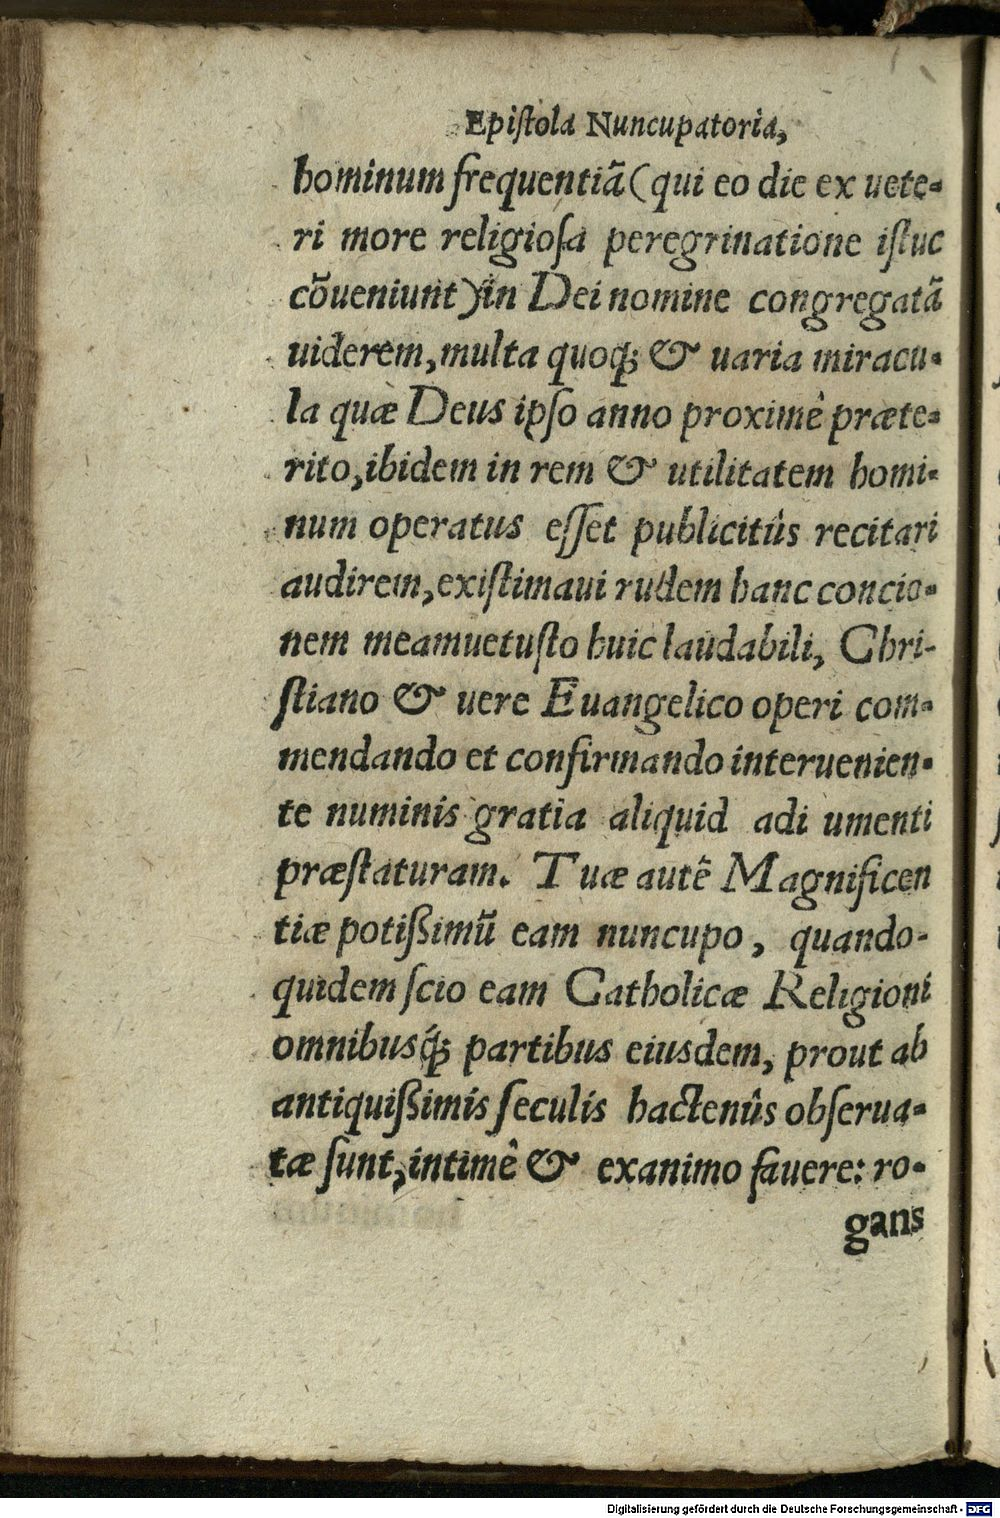 Epiſtola Nuncupatoria,
hominum frequentiã (qui eo die ex uete-
ri more religioſa peregrinatione iſtuc
cõueniunt) in Dei nomine congregatã
uiderem, multa quoq; & uaria miracu-
la quæ Deus ipſo anno proximè præte-
rito, ibidem in rem & utilitatem homi-
num operatus eſſet publicitûs recitari
audirem, exiſtimaui rudem hanc concio-
nem meam uetuſto huic laudabili, Chri-
ſtiano & uere Euangelico operi com-
mendando et confirmando interuenien-
te numinis gratia aliquid adi umenti
præſtaturam. Tuæ autẽ Magnificen
tiæ potißimũ eam nuncupo, quando-
quidem ſcio eam Catholicæ Religioni
omnibusq́; partibus eiusdem, prout ab
antiquißimis ſeculis hactenûs obſerua-
tæ ſunt, intimê & exanimo fauere: ro-
gans
Digitalisierung gefördert durch die Deutsche Forschungsgemeinschaft - DFG